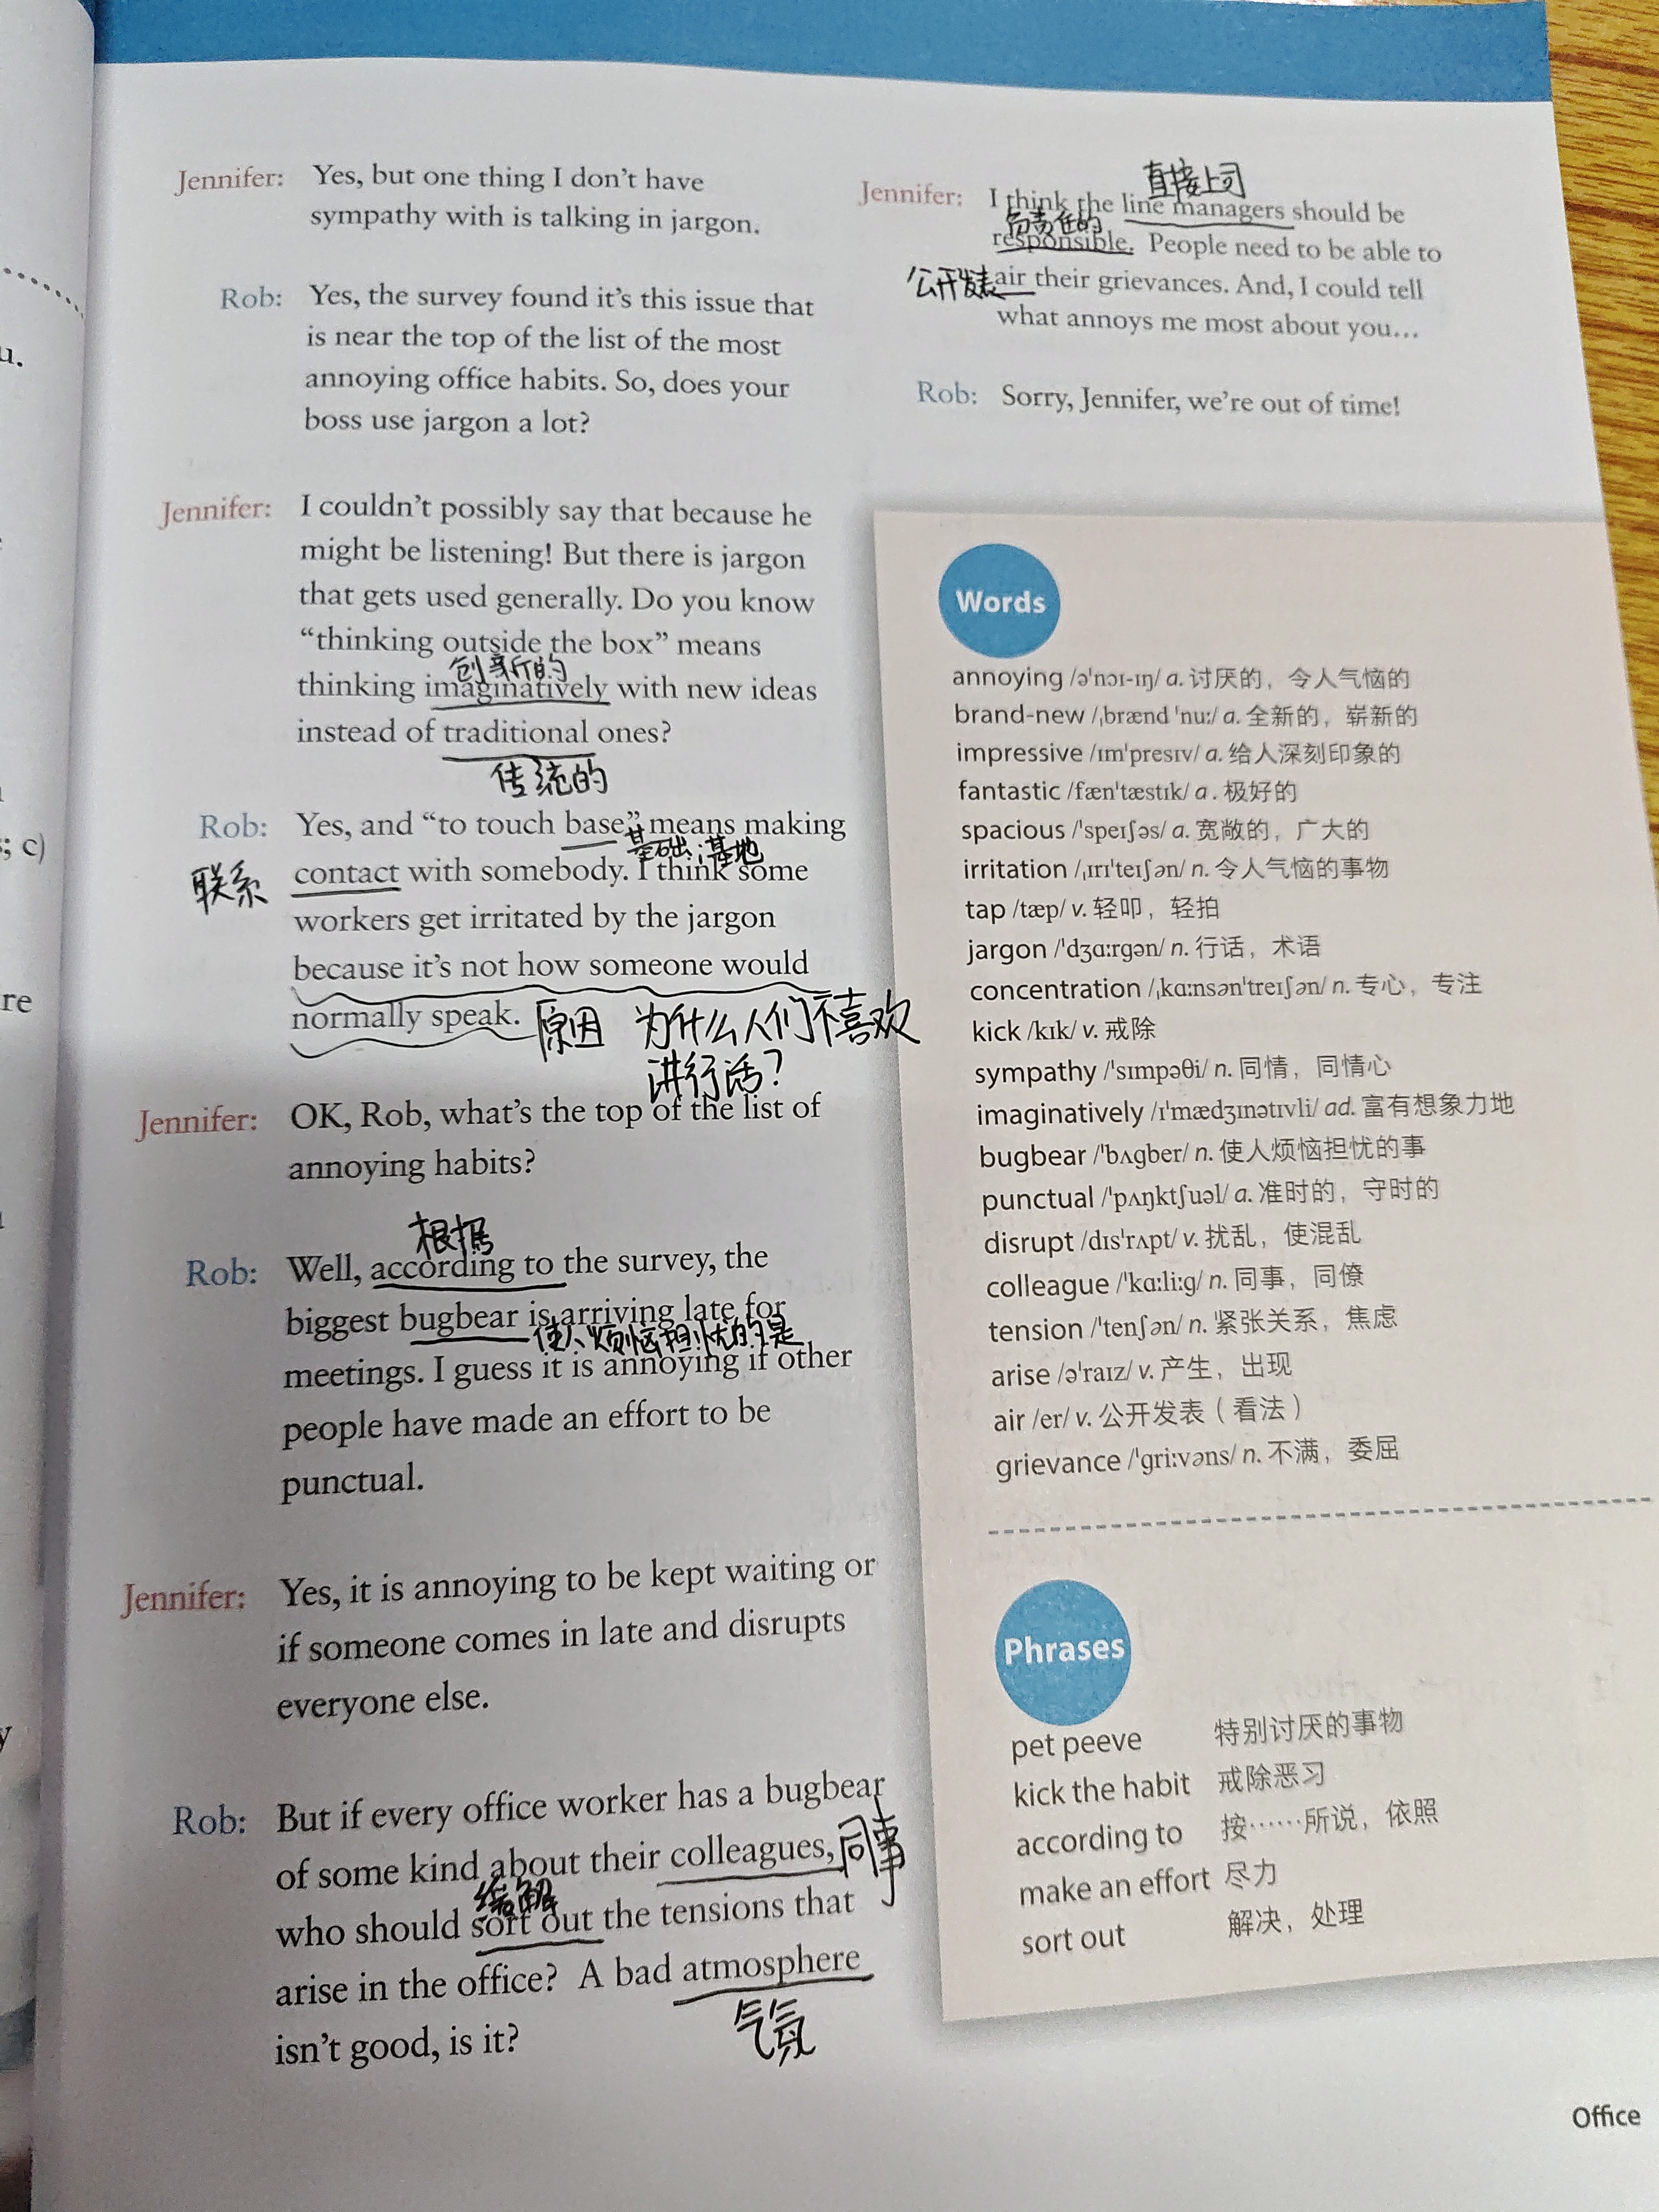 Jennifer: Yes, but one thing I don't have
sympathy with is talking in jargon.
Rob: Yes, the survey found it's this issue that
is near the top of the list of the most
annoying office habits. So, does your
boss use jargon a lot?
Jennifer: I couldn't possibly say that because he
might be listening! But there is jargon
that gets used generally. Do you know
“thinking outside the box” means
创新的
thinking imaginatively with new ideas
instead of traditional ones?
传统的
Rob: Yes, and “to touch base” means making
基础；基地
联系 contact with somebody. I think some
workers get irritated by the jargon
because it's not how someone would
normally speak. 原因 为什么人们不喜欢
讲行话？
Jennifer: OK, Rob, what's the top of the list of
annoying habits?
根据
Rob: Well, according to the survey, the
biggest bugbear is arriving late for
使人烦恼担忧的是
meetings. I guess it is annoying if other
people have made an effort to be
punctual.
Jennifer: Yes, it is annoying to be kept waiting or
if someone comes in late and disrupts
everyone else.
Rob: But if every office worker has a bugbear
of some kind about their colleagues, 同事
who should sort out the tensions that
arise in the office? A bad atmosphere
气氛
isn't good, is it?
直接上司
Jennifer: I think the line managers should be
负责任的
responsible. People need to be able to
公开发表 air their grievances. And, I could tell
what annoys me most about you…
Rob: Sorry, Jennifer, we're out of time!
Words
annoying /əˈnɔɪ-ɪŋ/ a. 讨厌的，令人气恼的
brand-new /ˌbrænd ˈnuː/ a. 全新的，崭新的
impressive /ɪmˈpresɪv/ a. 给人深刻印象的
fantastic /fænˈtæstɪk/ a. 极好的
spacious /ˈspeɪʃəs/ a. 宽敞的，广大的
irritation /ˌɪrɪˈteɪʃən/ n. 令人气恼的事物
tap /tæp/ v. 轻叩，轻拍
jargon /ˈdʒɑːrgən/ n. 行话，术语
concentration /ˌkɑːnsənˈtreɪʃən/ n. 专心，专注
kick /kɪk/ v. 戒除
sympathy /ˈsɪmpəθi/ n. 同情，同情心
imaginatively /ɪˈmædʒɪnətɪvli/ ad. 富有想象力地
bugbear /ˈbʌgber/ n. 使人烦恼担忧的事
punctual /ˈpʌŋktʃuəl/ a. 准时的，守时的
disrupt /dɪsˈrʌpt/ v. 扰乱，使混乱
colleague /ˈkɑːliːg/ n. 同事，同僚
tension /ˈtenʃən/ n. 紧张关系，焦虑
arise /əˈraɪz/ v. 产生，出现
air /er/ v. 公开发表（看法）
grievance /ˈgriːvəns/ n. 不满，委屈
Phrases
pet peeve 特别讨厌的事物
kick the habit 戒除恶习
according to 按……所说，依照
make an effort 尽力
sort out 解决，处理
Office